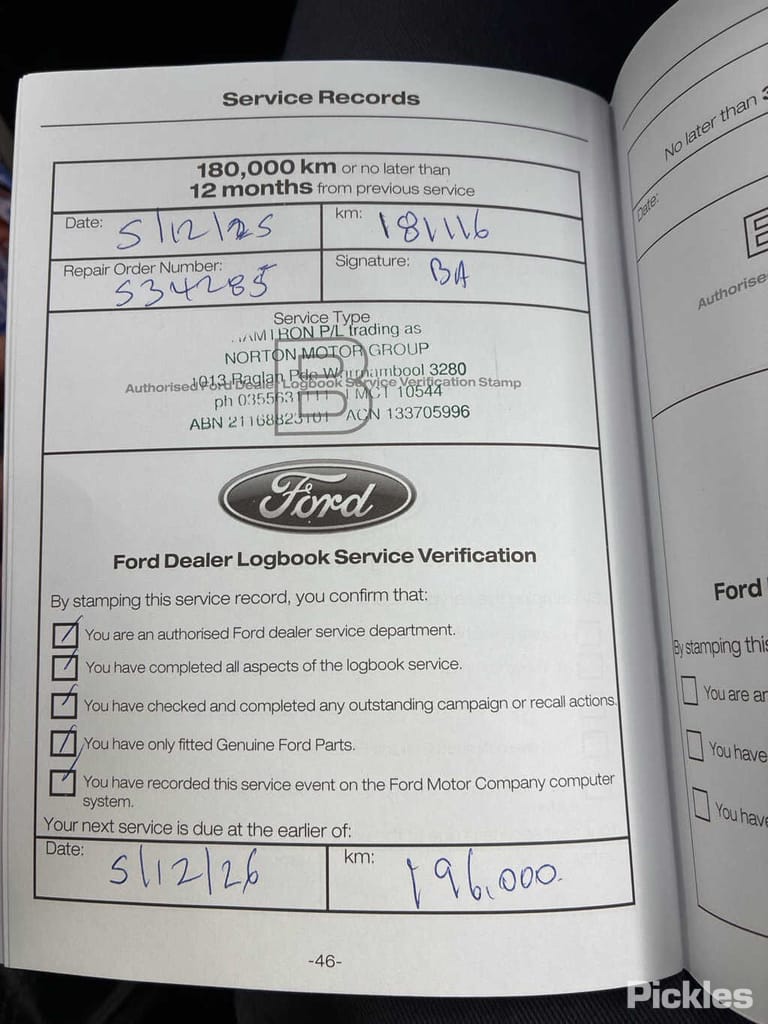 Service Records
180,000 km or no later than
12 months from previous service
Date: 5/12/25
km: 181116
Repair Order Number: 534285
Signature: BA
Service Type
B
P/L trading as
NORTON MOTOR GROUP
1013 Raglan Pde Warrnambool 3280
Authorised Ford Dealer Logbook Service Verification Stamp
ph LMCT 10544
ABN ACN 133705996
Ford
Ford Dealer Logbook Service Verification
By stamping this service record, you confirm that:
You are an authorised Ford dealer service department.
You have completed all aspects of the logbook service.
You have checked and completed any outstanding campaign or recall actions.
You have only fitted Genuine Ford Parts.
You have recorded this service event on the Ford Motor Company computer
system.
Your next service is due at the earlier of:
Date: 5/12/26
km: 196,000
-46-
No later than
Date:
Authorise
Ford
By stamping this
You are an
You have
You have
Pickles